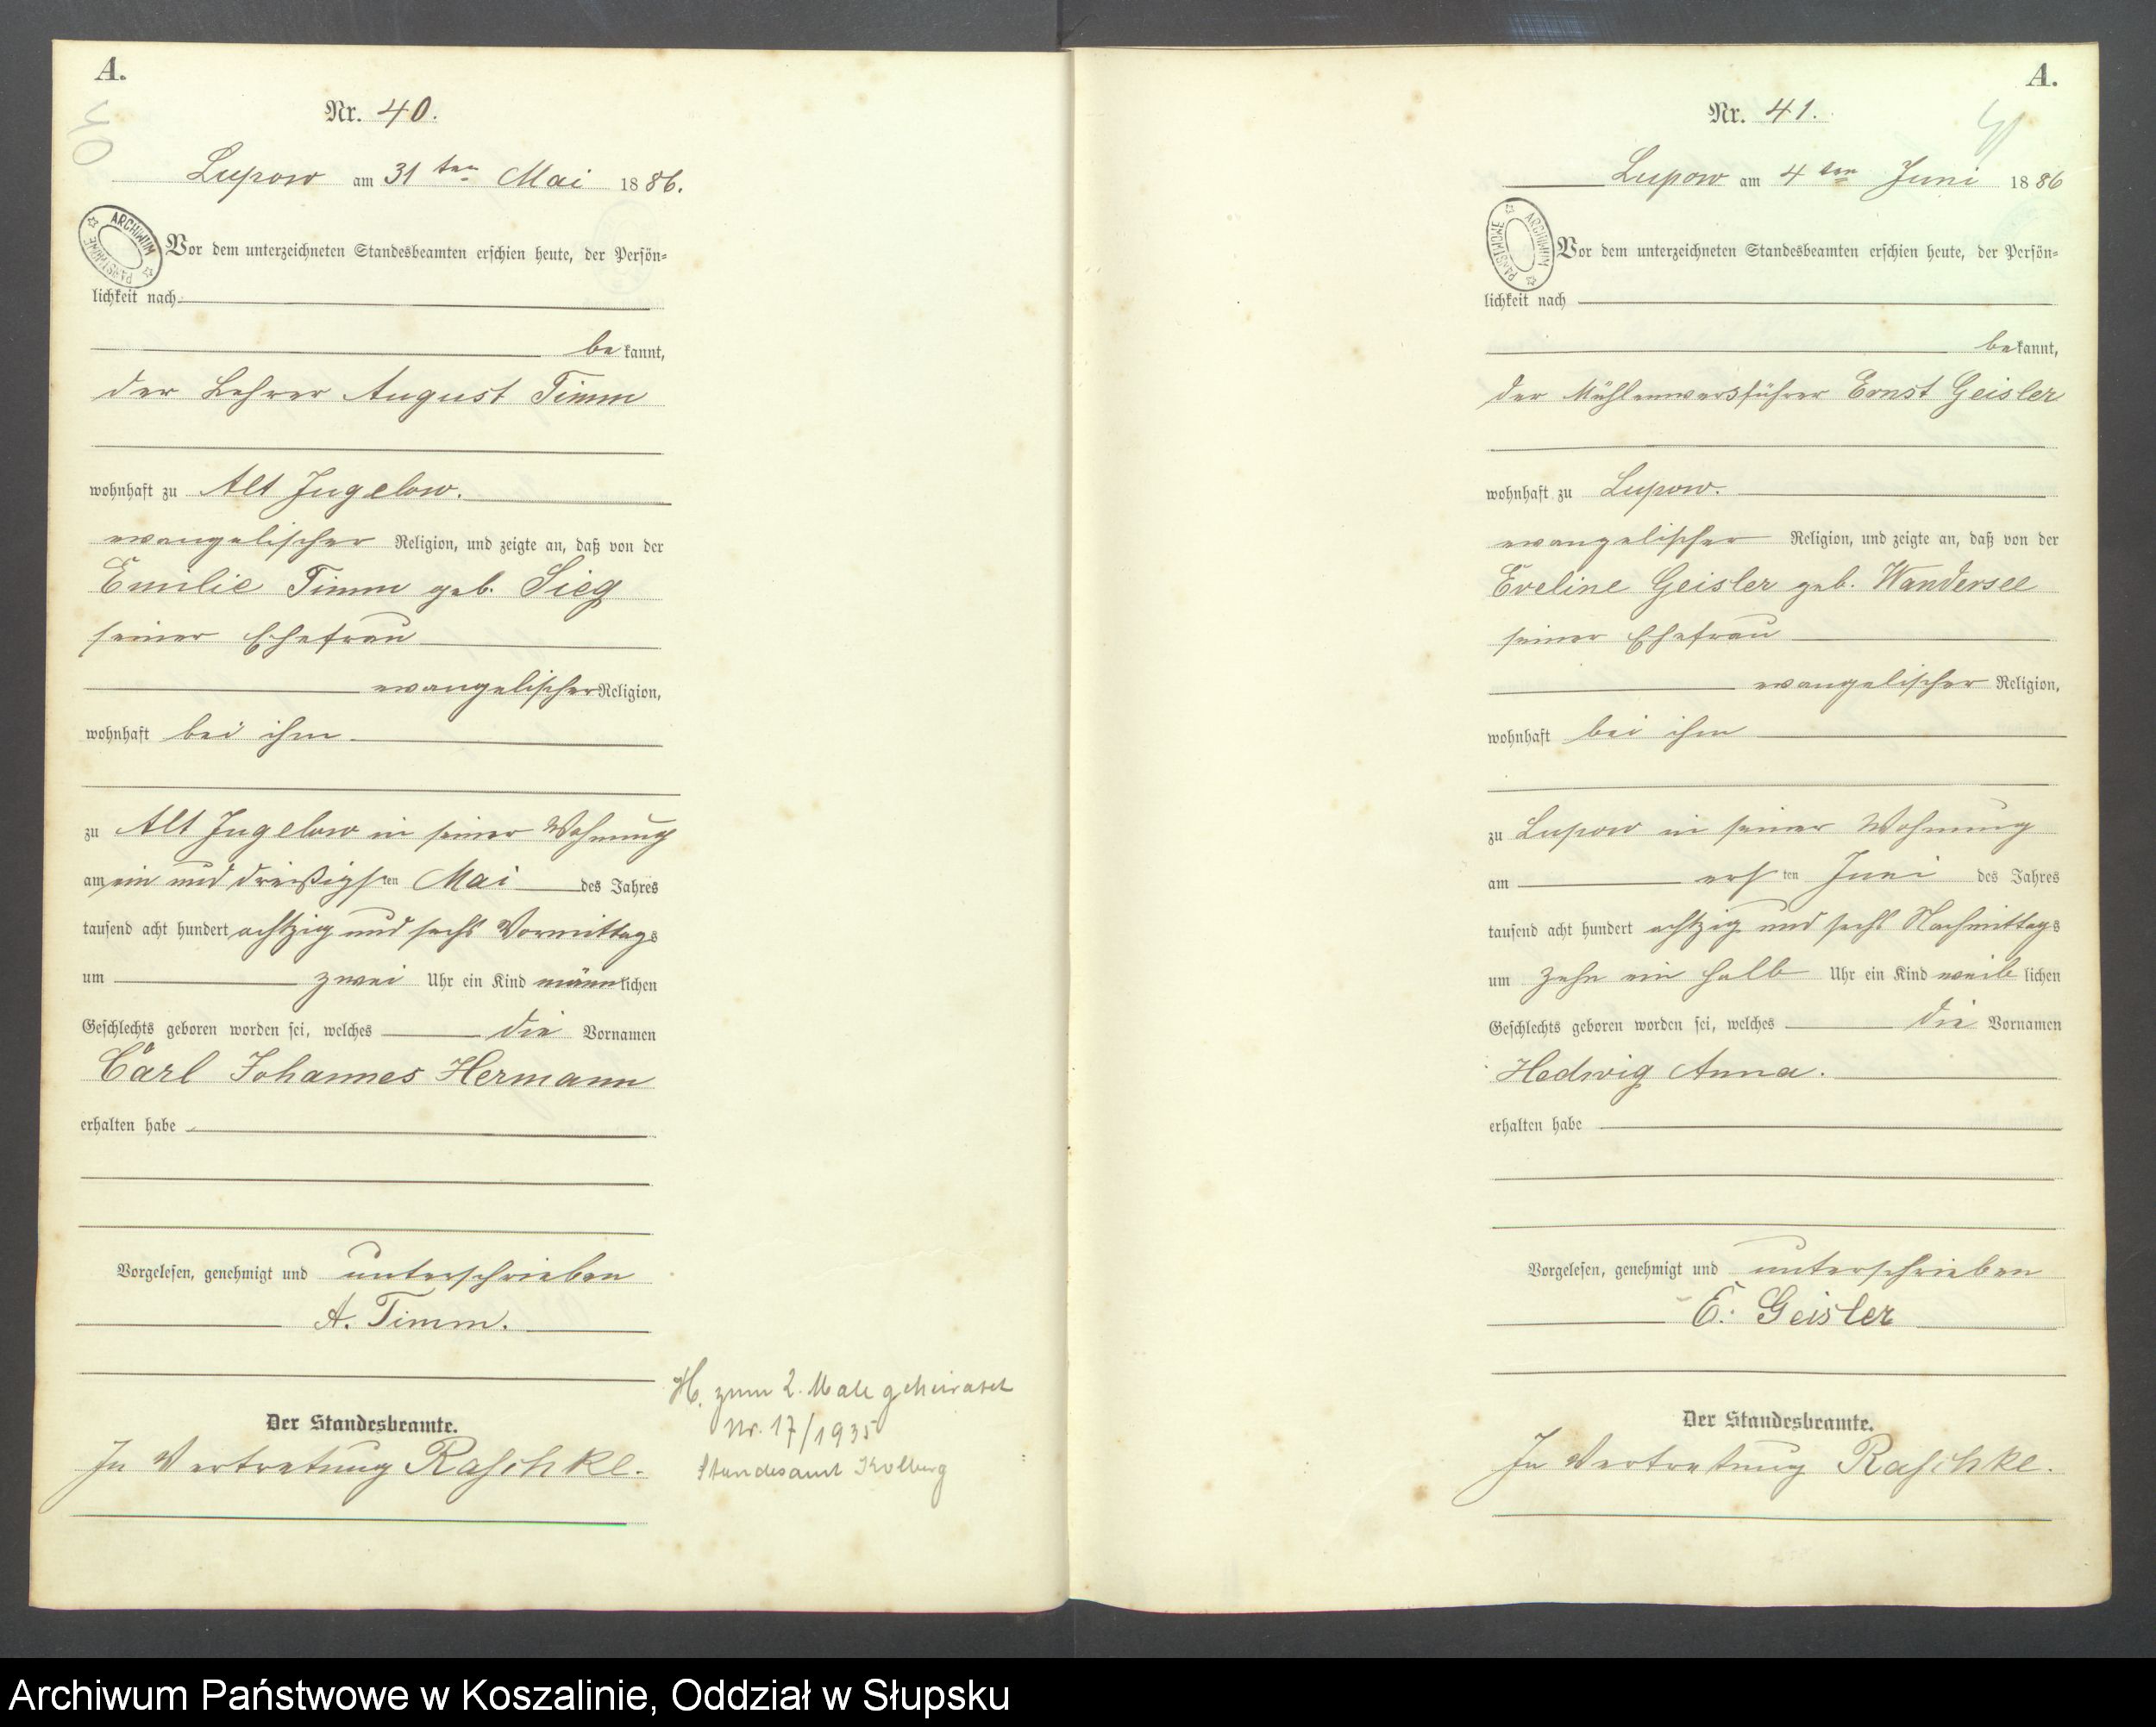 A.
40
Nr. 40.
Lupow am 31 ten Mai 1886.
ARCHIWUM PAŃSTWOWE
Vor dem unterzeichneten Standesbeamten erschien heute, der Persön-
lichkeit nach
bekannt,
der Lehrer August Timm
wohnhaft zu Alt Jugelow.
evangelischer Religion, und zeigte an, daß von der
Emilie Timm geb. Sieg
seiner Ehefrau
evangelischer Religion,
wohnhaft bei ihm
zu Alt Jugelow in seiner Wohnung
am ein und dreißigsten Mai des Jahres
tausend acht hundert achtzig und sechs Vormittags
um zwei Uhr ein Kind männlichen
Geschlechts geboren worden sei, welches die Vornamen
Carl Johannes Hermann
erhalten habe
Vorgelesen, genehmigt und unterschrieben
A. Timm.
Der Standesbeamte.
In Vertretung Raschke.
H. zum 2. Male geheiratet
Nr. 17/1935
Standesamt Kolberg
A.
41
Nr. 41.
Lupow am 4 ten Juni 1886
ARCHIWUM PAŃSTWOWE
Vor dem unterzeichneten Standesbeamten erschien heute, der Persön-
lichkeit nach
bekannt,
der Mühlenwerkführer Ernst Geisler
wohnhaft zu Lupow.
evangelischer Religion, und zeigte an, daß von der
Eveline Geisler geb. Wandersee
seiner Ehefrau
evangelischer Religion,
wohnhaft bei ihm
zu Lupow in seiner Wohnung
am ersten Juni des Jahres
tausend acht hundert achtzig und sechs Nachmittags
um zehn ein halb Uhr ein Kind weiblichen
Geschlechts geboren worden sei, welches die Vornamen
Hedwig Anna.
erhalten habe
Vorgelesen, genehmigt und unterschrieben
E. Geisler
Der Standesbeamte.
In Vertretung Raschke.
Archiwum Państwowe w Koszalinie, Oddział w Słupsku